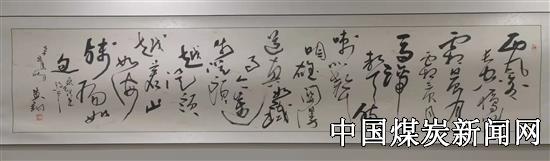 西风烈
长空雁叫
霜晨月
霜晨月
马蹄
声碎
喇叭声
咽雄关漫
道真如铁
而今迈
步从头
越从头
越苍山
如海
残阳如
血
中国煤炭新闻网